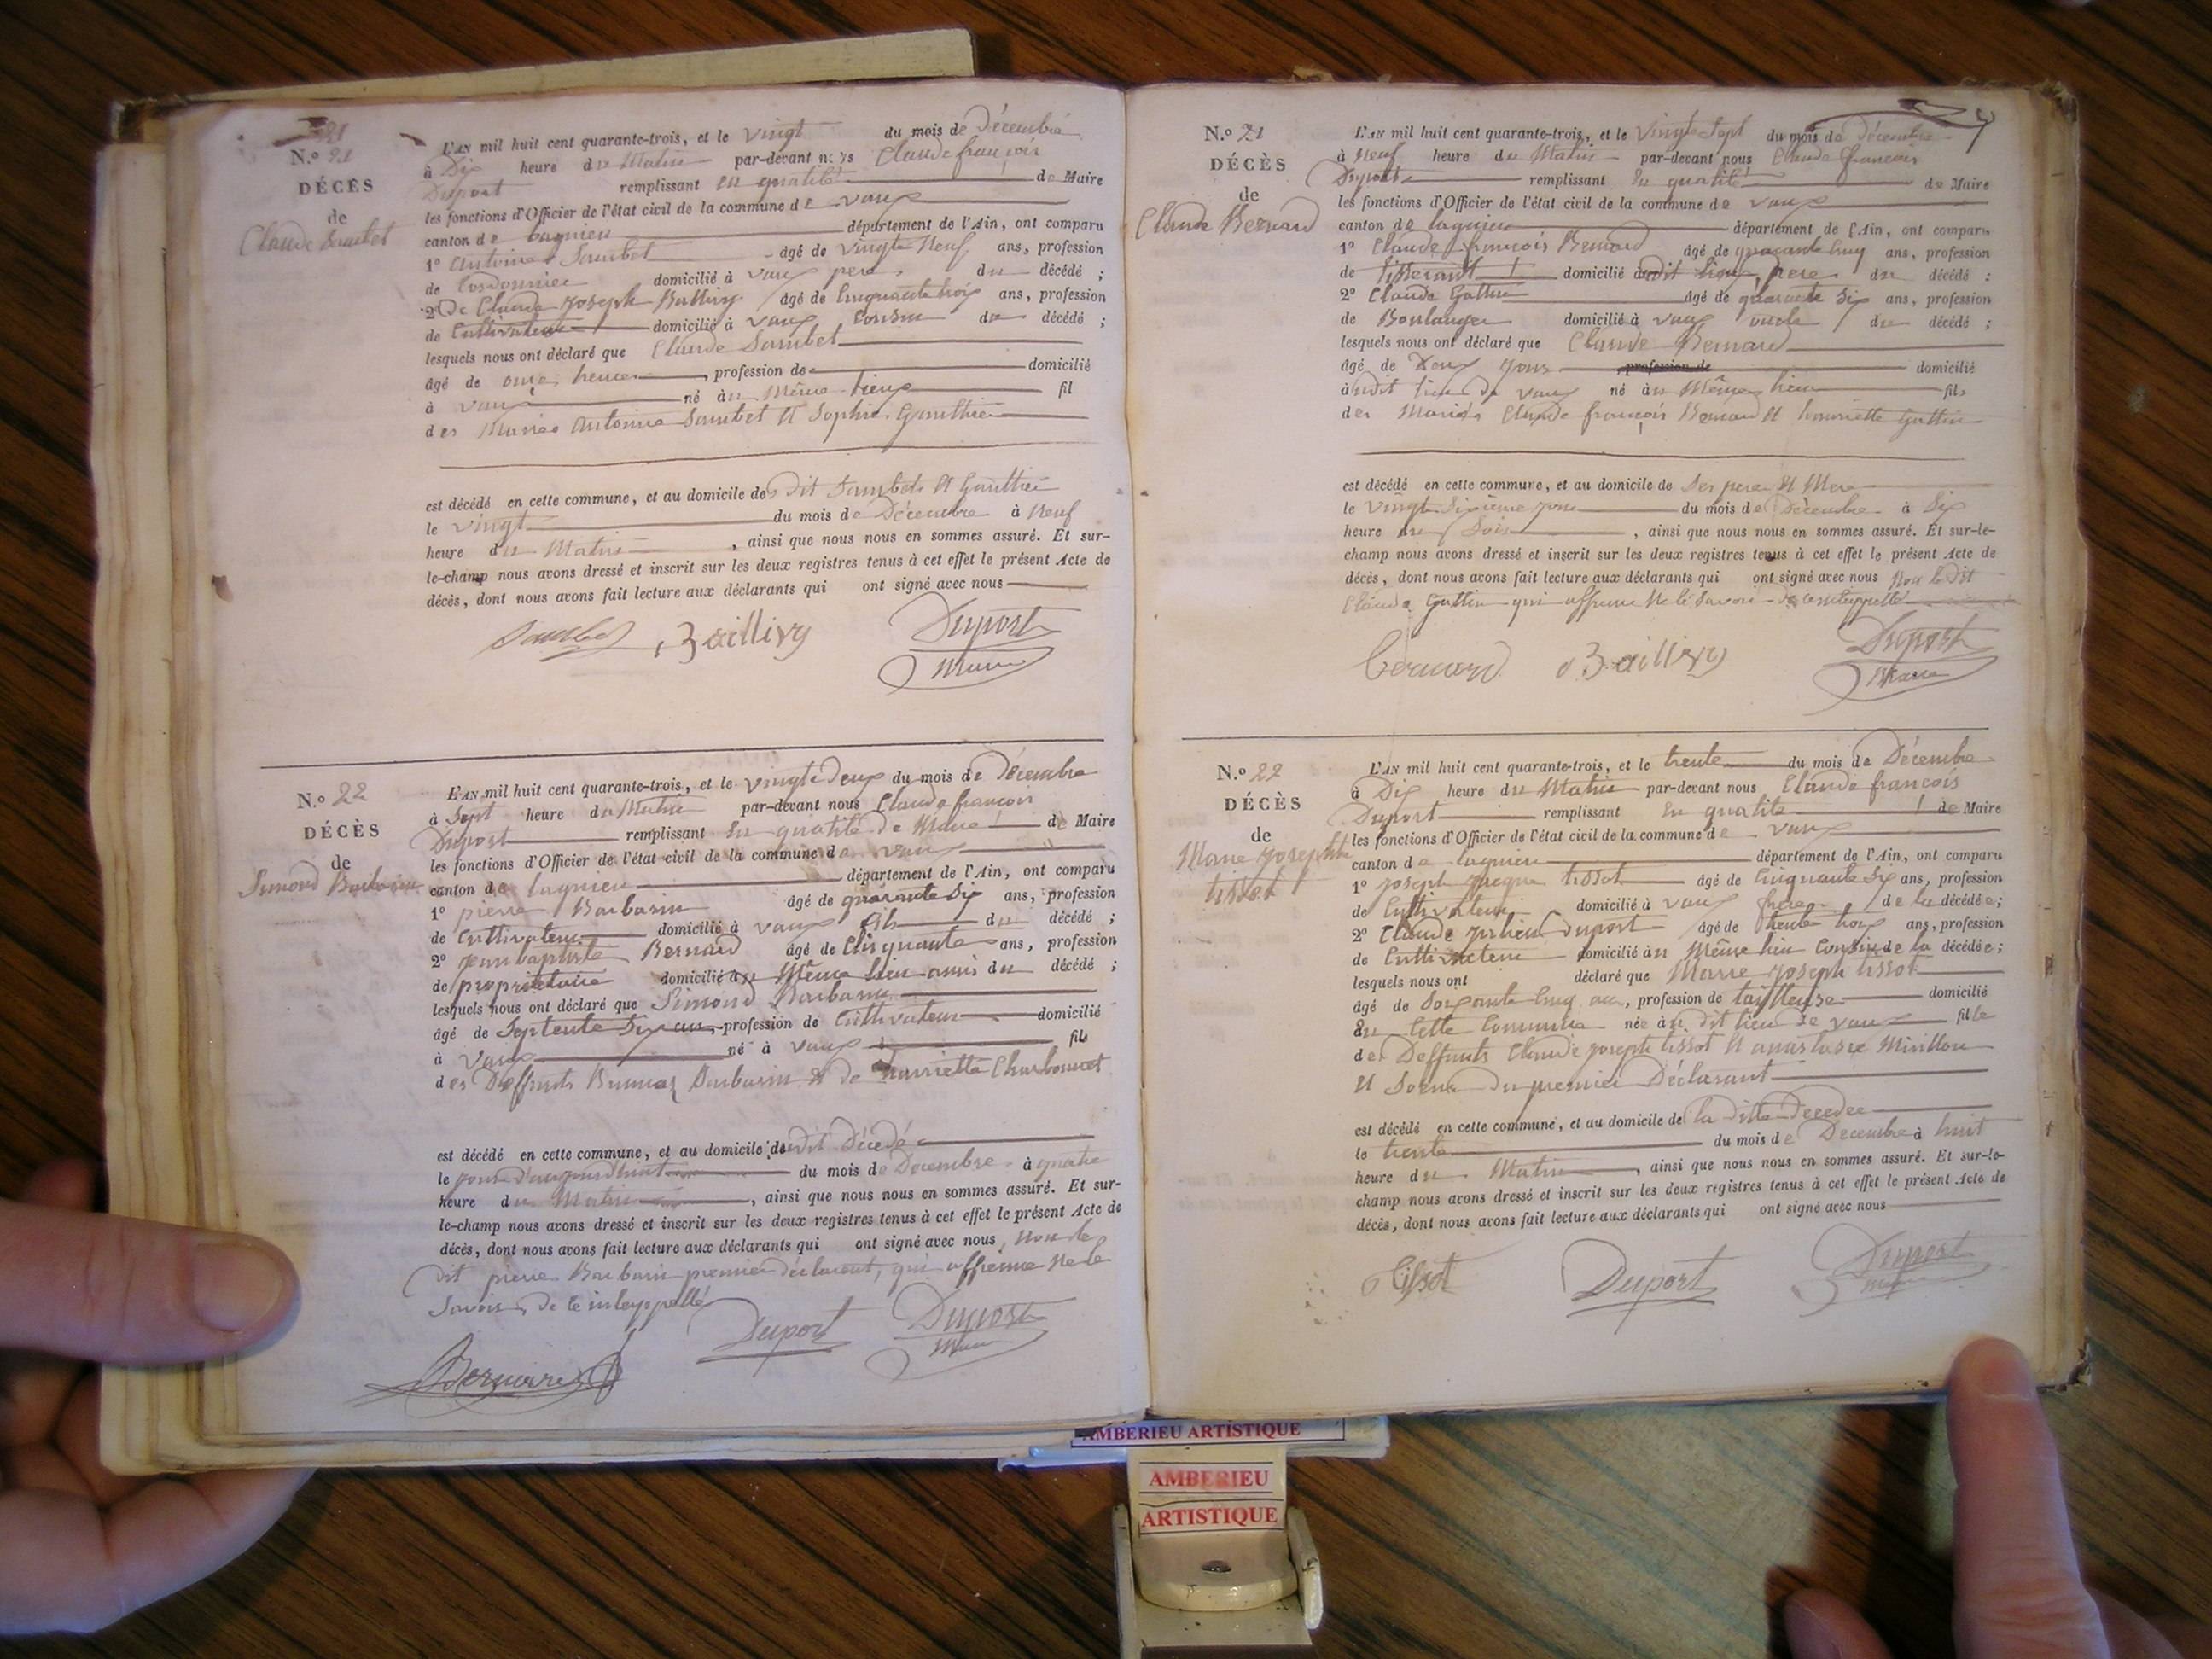 21
N.o 21
DÉCÈS
de
Claude Sambet
L'AN mil huit cent quarante-trois, et le vingt du mois de Décembre
à Dix heure du Matin par-devant nous Claude françois
Duport remplissant en qualité de Maire
les fonctions d'Officier de l'état civil de la commune de vaux
canton de lagnieu département de l'Ain, ont comparu
1o Antoine Sambet âgé de vingt Neuf ans, profession
de Cordonnier domicilié à vaux pere du décédé ;
2o De Claude Joseph âgé de Cinquante trois ans, profession
de Cultivateur domicilié à vaux Cousin du décédé ;
lesquels nous ont déclaré que Claude Sambet
âgé de onze heures, profession de domicilié
à vaux né au Même lieux fil
des Mariés Antoine Sambet et Sophie Gauthier
est décédé en cette commune, et au domicile des dit Sambet et Gauthier
le vingt du mois de Décembre à Neuf
heure du Matin, ainsi que nous nous en sommes assuré. Et sur-
le-champ nous avons dressé et inscrit sur les deux registres tenus à cet effet le présent Acte de
décès, dont nous avons fait lecture aux déclarants qui ont signé avec nous
Sambet Baillivy Duport
Maire
N.o 22
DÉCÈS
de
Simond Barbarin
L'AN mil huit cent quarante-trois, et le vingt Deux du mois de Décembre
à Sept heure du Matin par-devant nous Claude françois
Duport remplissant en qualité de Maire de Maire
les fonctions d'Officier de l'état civil de la commune de vaux
canton de lagnieu département de l'Ain, ont comparu
1o pierre Barbarin âgé de quarante Six ans, profession
de Cultivateur domicilié à vaux fils du décédé ;
2o Jean baptiste Bernard âgé de Cinquante ans, profession
de proprietaire domicilié au Même lieu amis du décédé ;
lesquels nous ont déclaré que Simond Barbarin
âgé de Septente Six ans, profession de Cultivateur domicilié
à Vaux né à vaux fils
des Deffunts Barbarin et de Henriette Charbonnet
est décédé en cette commune, et au domicile du dit Décedé
le jour d'aujourdhuit du mois de Decembre à quatre
heure du Matin, ainsi que nous nous en sommes assuré. Et sur-
le-champ nous avons dressé et inscrit sur les deux registres tenus à cet effet le présent Acte de
décès, dont nous avons fait lecture aux déclarants qui ont signé avec nous, Non le
dit pierre Barbarin premier déclarant, qui affirme Ne le
Savoir de ce inteyppellé
Bernard Duport Duport
Maire
N.o 21
DÉCÈS
de
Claude Bernard
L'AN mil huit cent quarante-trois, et le vingt Sept du mois de Décembre
à Neuf heure du Matin par-devant nous Claude francois
Duport remplissant En qualité de Maire
les fonctions d'Officier de l'état civil de la commune de vaux
canton de lagnieu département de l'Ain, ont comparu
1o Claude francois Bernard âgé de quarante Cinq ans, profession
de tisserant domicilié audit lieux, pere du décédé :
2o Claude Guttin âgé de quarante Six ans, profession
de Boulanger domicilié à vaux oncle du décédé ;
lesquels nous ont déclaré que Claude Bernard
âgé de Deux jours profession de domicilié
audit lieu de vaux né au Même lieu fils
des Mariés Claude françois Bernard et henriette Guttin
est décédé en cette commune, et au domicile de Ses pere et Mere
le vingt Sixieme jour du mois de Décembre à Six
heure du Soir, ainsi que nous nous en sommes assuré. Et sur-le-
champ nous avons dressé et inscrit sur les deux registres tenus à cet effet le présent Acte de
décès, dont nous avons fait lecture aux déclarants qui ont signé avec nous Non le dit
Claude Guttin qui affirme Ne le Savoir de ce inteyppellé
bernard Baillivy Duport
Maire
N.o 22
DÉCÈS
de
Marie Josephte
tissot
L'AN mil huit cent quarante-trois, et le trente du mois de Décembre
à Dix heure du Matin par-devant nous Claude francois
Duport remplissant En qualité de Maire
les fonctions d'Officier de l'état civil de la commune de vaux
canton de lagnieu département de l'Ain, ont comparu
1o Joseph tissot âgé de Cinquante Six ans, profession
de Cultivateur domicilié à vaux frere de la décédée;
2o Claude Julien Duport âgé de trente trois ans, profession
de Cultivateur domicilié au Même lieu Cousin de la décédée;
lesquels nous ont déclaré que Marie Joseph tissot
âgé de Soixante Cinq ans, profession de tailleuse domicilié
en Cette Commune née au dit lieu de vaux fille
des Deffunts Claude Joseph tissot et anastasie Mirillon
et Soeur du premier Déclarant
est décédé en cette commune, et au domicile de la ditte Décedée
le trente du mois de Decembre à huit
heure du Matin, ainsi que nous nous en sommes assuré. Et sur-le-
champ nous avons dressé et inscrit sur les deux registres tenus à cet effet le présent Acte de
décès, dont nous avons fait lecture aux déclarants qui ont signé avec nous
tissot Duport Duport
AMBERIEU ARTISTIQUE
AMBERIEU
ARTISTIQUE